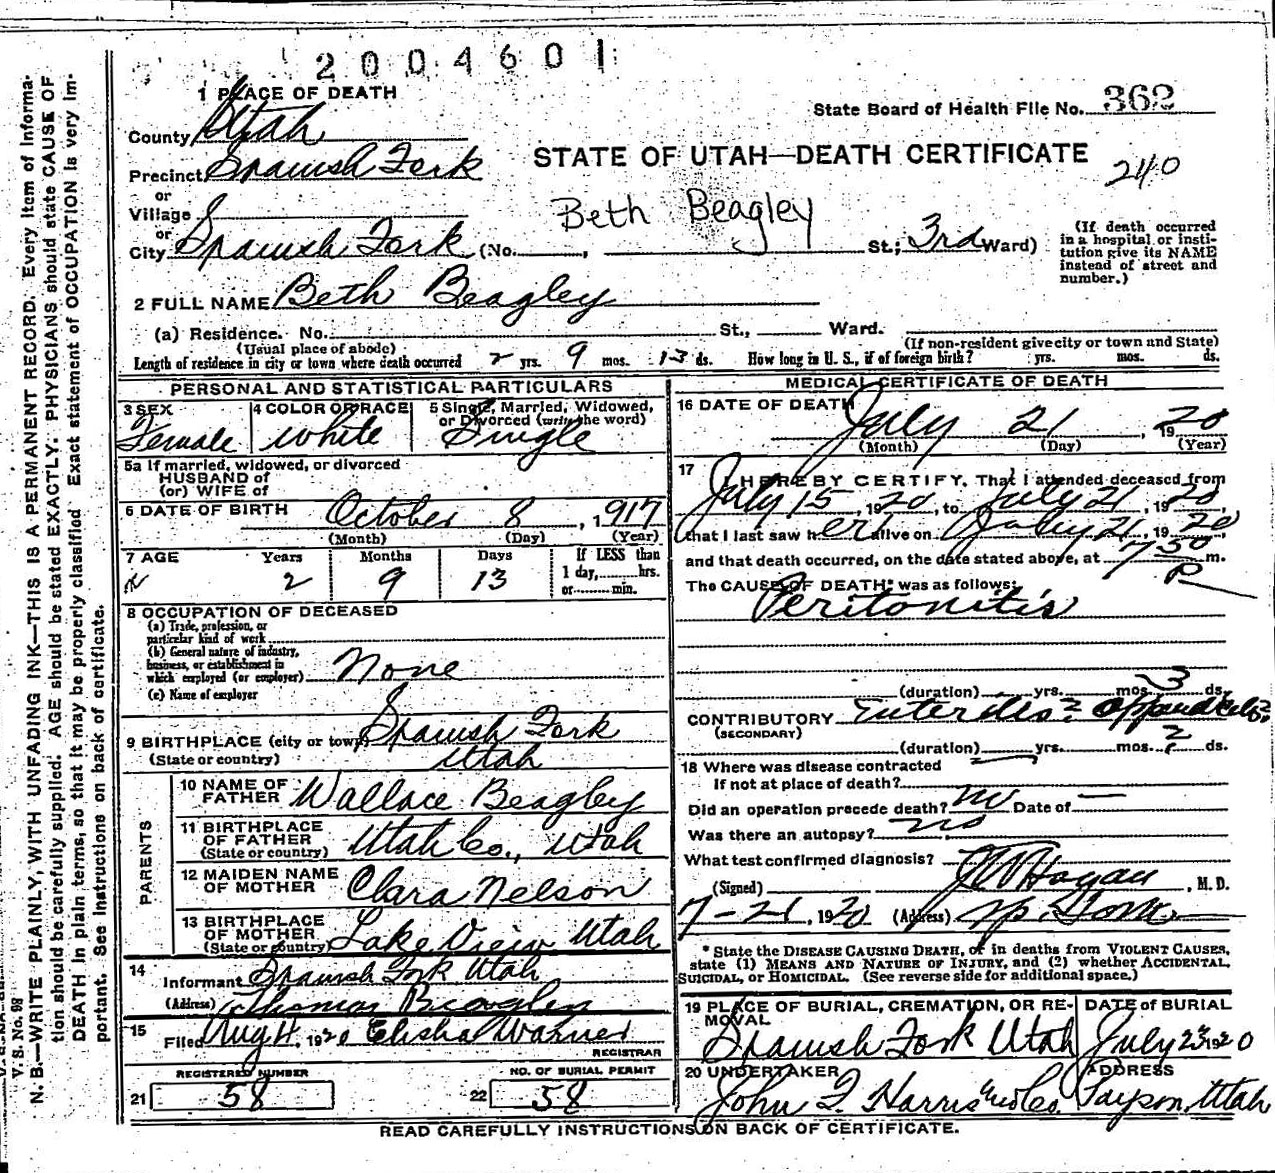 2004601
1 PLACE OF DEATH
State Board of Health File No. 362
County Utah
STATE OF UTAH—DEATH CERTIFICATE
240
Precinct Spanish Fork
or
Village
Beth Beagley
or
City Spanish Fork (No. , St.; 3rd Ward)
(If death occurred
in a hospital or insti-
tution give its NAME
instead of street and
number.)
2 FULL NAME Beth Beagley
(a) Residence. No. St., Ward.
(Usual place of abode)
(If non-resident give city or town and State)
Length of residence in city or town where death occurred 2 yrs. 9 mos. 13 ds. How long in U. S., if of foreign birth? yrs. mos. ds.
PERSONAL AND STATISTICAL PARTICULARS
3 SEX
Female
4 COLOR OR RACE
White
5 Single, Married, Widowed,
or Divorced (write the word)
Single
5a If married, widowed, or divorced
HUSBAND of
(or) WIFE of
6 DATE OF BIRTH October 8, 1917
(Month) (Day) (Year)
7 AGE Years Months Days If LESS than
1 day, hrs.
or min.
2 9 13
8 OCCUPATION OF DECEASED
(a) Trade, profession, or
particular kind of work
(b) General nature of industry,
business, or establishment in
which employed (or employer) None
(c) Name of employer
9 BIRTHPLACE (city or town) Spanish Fork
(State or country) Utah
PARENTS
10 NAME OF
FATHER Wallace Beagley
11 BIRTHPLACE
OF FATHER Utah Co., Utah
(State or country)
12 MAIDEN NAME
OF MOTHER Clara Nelson
13 BIRTHPLACE
OF MOTHER
(State or country) Lake View Utah
14
Informant Spanish Fork Utah
(Address) Thomas Beagley
15
Filed Aug 4, 1920 Elisha Warner
REGISTRAR
REGISTERED NUMBER
21 58
NO. OF BURIAL PERMIT
22 58
MEDICAL CERTIFICATE OF DEATH
16 DATE OF DEATH
July 21, 1920
(Month) (Day) (Year)
17
I HEREBY CERTIFY, That I attended deceased from
July 15, 1920, to July 21, 1920
that I last saw her alive on July 21, 1920,
and that death occurred, on the date stated above, at 7 30 P m.
The CAUSE OF DEATH* was as follows:
Peritonitis
(duration) yrs. mos. 3 ds.
CONTRIBUTORY
(SECONDARY)
(duration) yrs. mos. ? ds.
18 Where was disease contracted
If not at place of death?
Did an operation precede death? no Date of —
Was there an autopsy? no
What test confirmed diagnosis?
(Signed) Hagan, M. D.
7-21, 1920 (Address) Sp. Fork
* State the DISEASE CAUSING DEATH, or in deaths from VIOLENT CAUSES,
state (1) MEANS AND NATURE OF INJURY, and (2) whether ACCIDENTAL,
SUICIDAL, or HOMICIDAL. (See reverse side for additional space.)
19 PLACE OF BURIAL, CREMATION, OR RE-
MOVAL
Spanish Fork Utah
DATE OF BURIAL
July 23 1920
20 UNDERTAKER
John T. Harris Und Co.
ADDRESS
Payson, Utah
READ CAREFULLY INSTRUCTIONS ON BACK OF CERTIFICATE.
V. S. No. 98
N. B.—WRITE PLAINLY, WITH UNFADING INK—THIS IS A PERMANENT RECORD. Every item of informa-
tion should be carefully supplied. AGE should be stated EXACTLY. PHYSICIANS should state CAUSE OF
DEATH in plain terms, so that it may be properly classified. Exact statement of OCCUPATION is very im-
portant. See instructions on back of certificate.